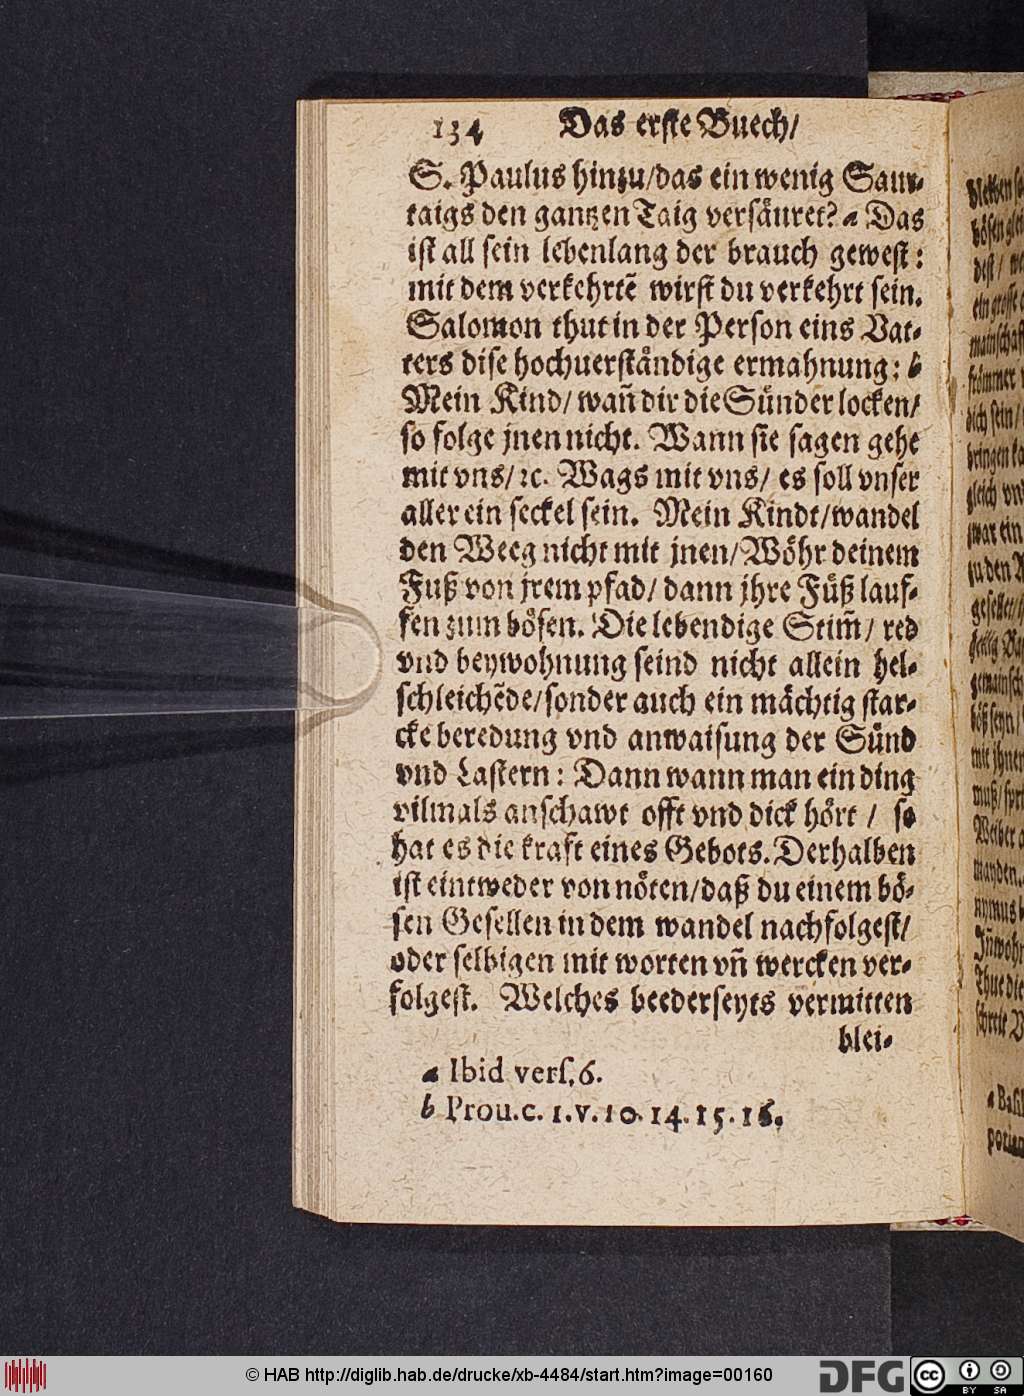 134 Das erste Buech/
S. Paulus hinzu/das ein wenig Saur-
taigs den gantzen Taig versäuret? a Das
ist all sein lebenlang der brauch gewest:
mit dem verkehrtē wirst du verkehrt sein.
Salomon thut in der Person eins Vat-
ters dise hochuerständige ermahnung: b
Mein Kind/ wañ dir die Sünder locken/
so folge jnen nicht. Wann sie sagen gehe
mit vns/ ꝛc. Wags mit vns/ es soll vnser
aller ein seckel sein. Mein Kindt/wandel
den Weeg nicht mit jnen/Wöhr deinem
Fuß von jrem pfad/ dann jhre Füß lauf-
fen zum bösen. Die lebendige Stim̃/ red
vnd beywohnung seind nicht allein hel-
schleichēde/sonder auch ein mächtig star-
cke beredung vnd anwaisung der Sünd
vnd Lastern: Dann wann man ein ding
vilmals anschawt offt vnd dick hört / so
hat es die kraft eines Gebots. Derhalben
ist eintweder von nöten/daß du einem bö-
sen Gesellen in dem wandel nachfolgest/
oder selbigen mit worten vñ wercken ver-
folgest. Welches beederseyts vermitten
blei-
a Ibid vers.6.
b Prou.c. 1.v.10.14.15.16.
© HAB http://diglib.hab.de/drucke/xb-4484/start.htm?image=00160
DFG
cc BY SA